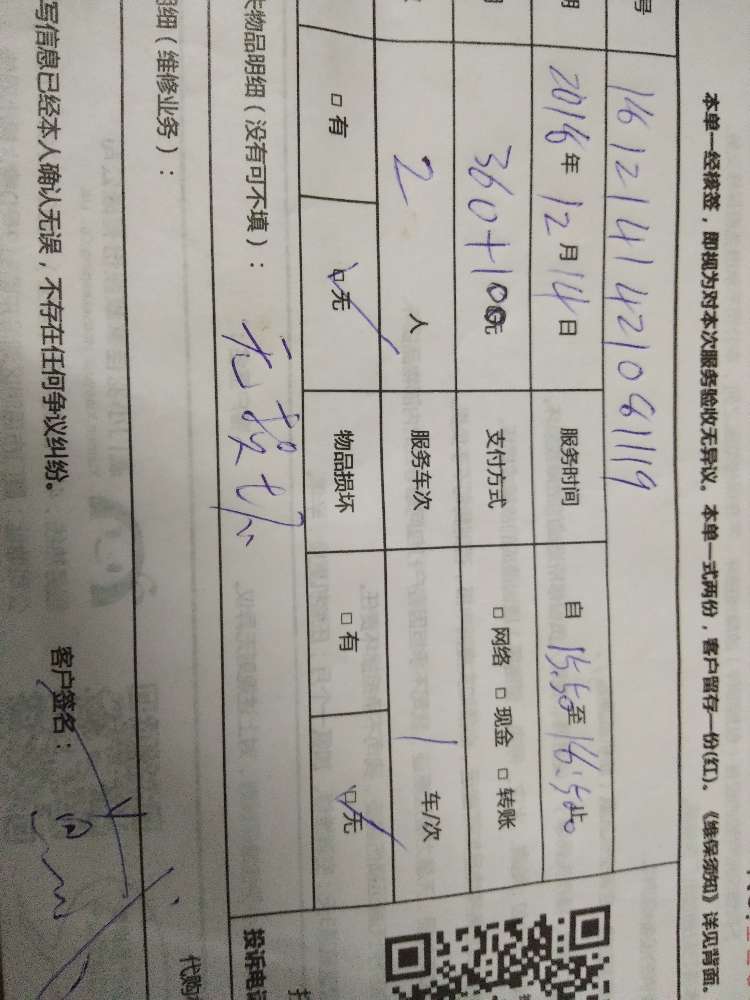 本单一经核签，即视为对本次服务验收无异议。本单一式两份，客户留存一份(红)。《维保须知》详见背面。
号 161214142108 1119
期 2016年12月14日 服务时间 自15:50至16:50
360+100元 支付方式 □网络 □现金 □转账
2人 服务车次 1车/次
□有 ☑无 物品损坏 □有 ☑无
失物品明细（没有可不填）： 无损坏
投诉电话
明细（维修业务）：
代购
写信息已经本人确认无误，不存在任何争议纠纷。 客户签名：